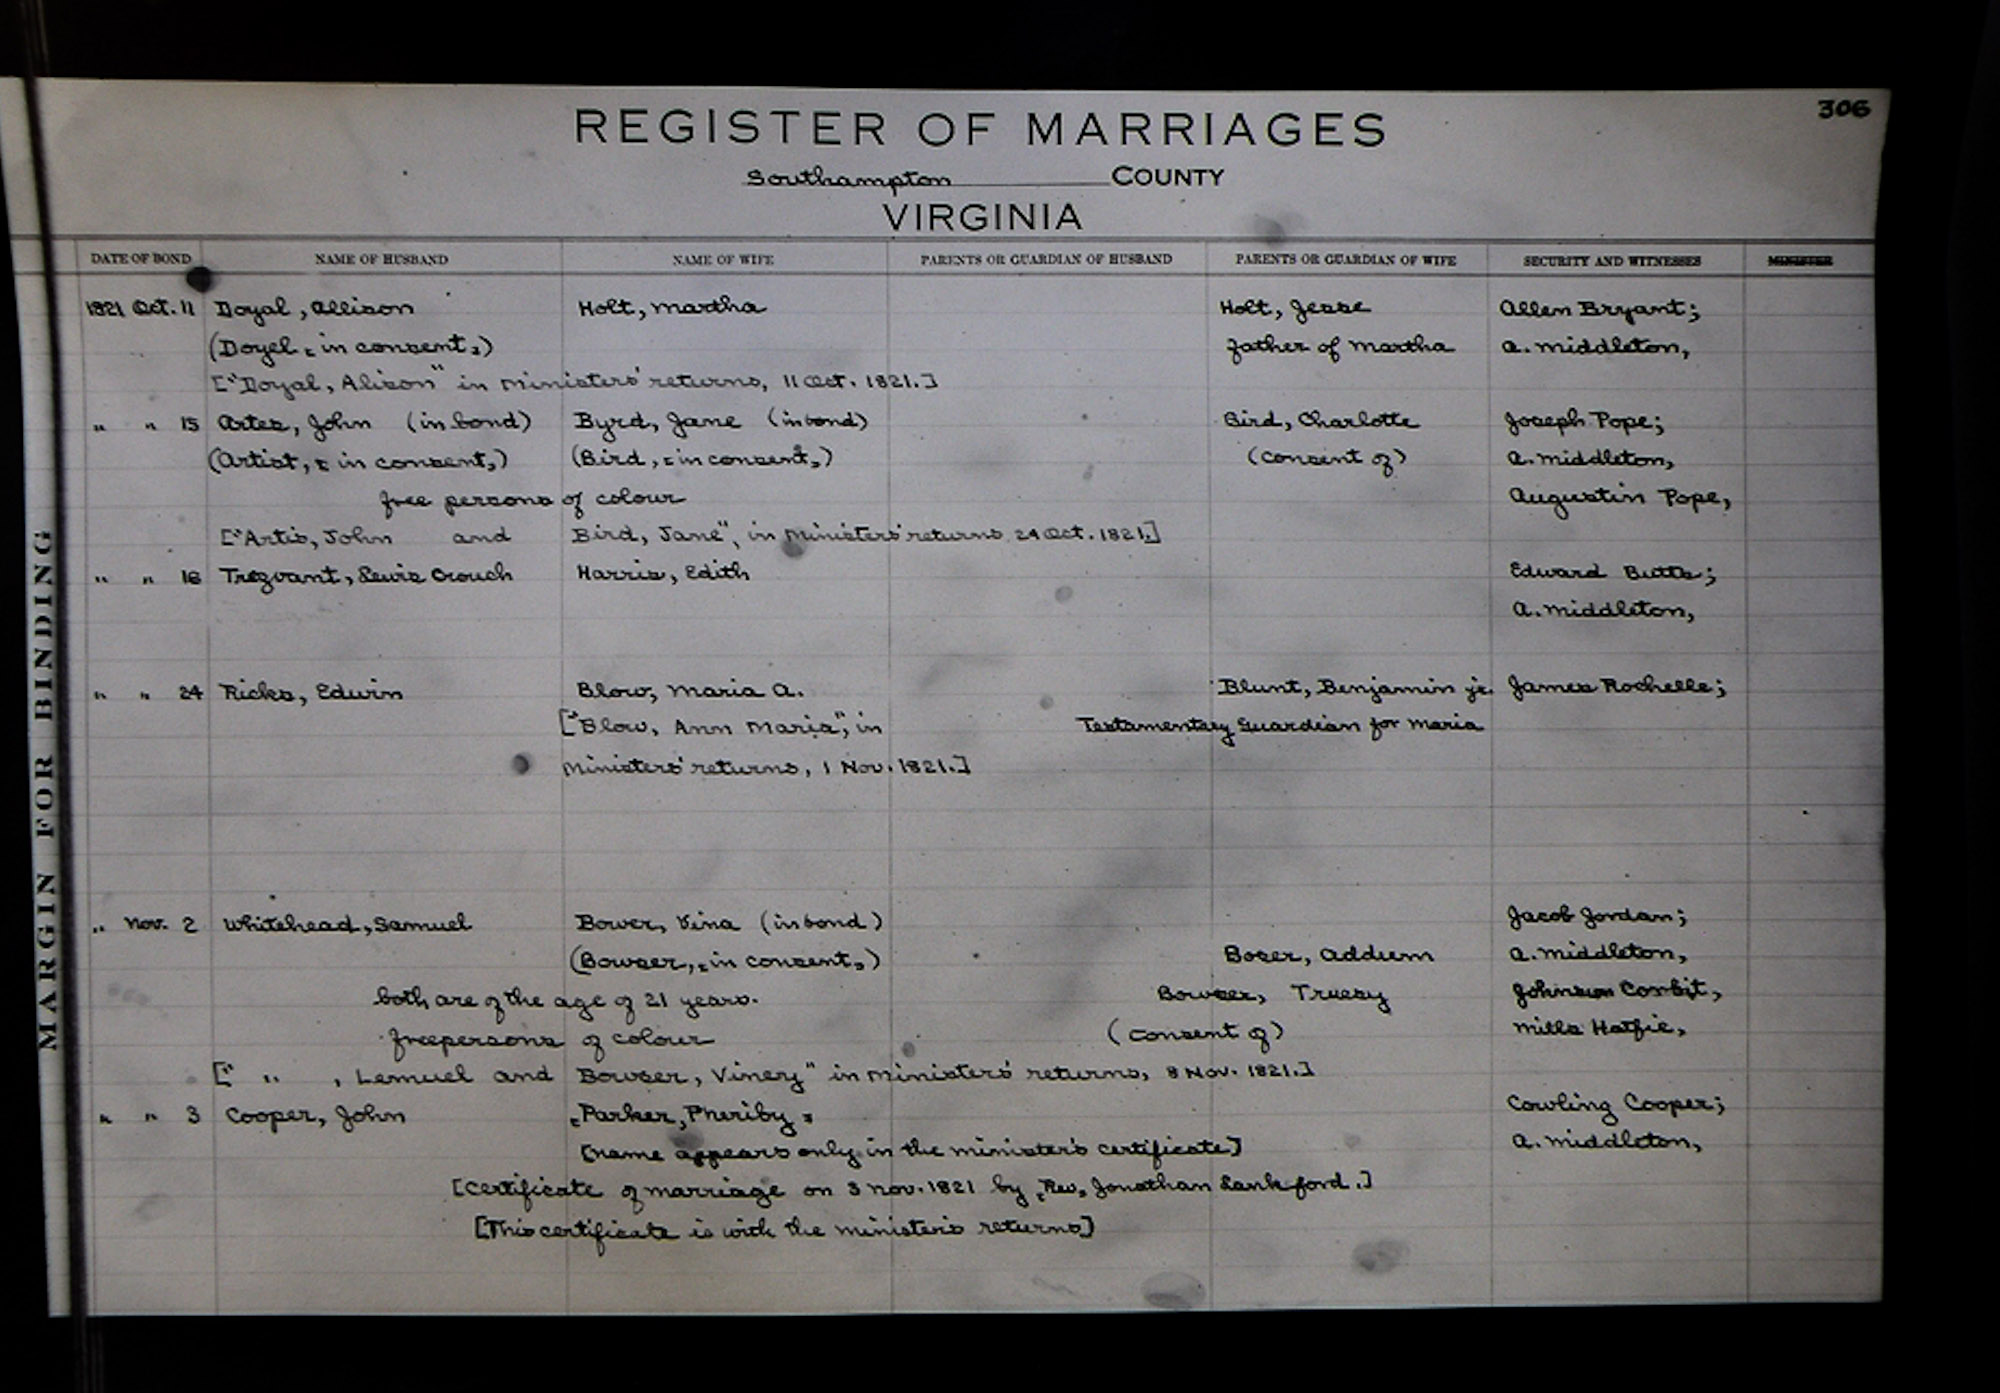 306
REGISTER OF MARRIAGES
Southampton COUNTY
VIRGINIA
DATE OF BOND NAME OF HUSBAND NAME OF WIFE PARENTS OR GUARDIAN OF HUSBAND PARENTS OR GUARDIAN OF WIFE SECURITY AND WITNESSES MINISTER
1821 Oct. 11 Doyal, Allison Holt, Martha Holt, Jesse Allen Bryant;
(Doyel, "in consent") father of Martha A. Middleton,
["Doyal, Alison" in Ministers' returns, 11 Oct. 1821.]
" " 15 Artes, John (in bond) Byrd, Jane (in bond) Bird, Charlotte Joseph Pope;
(Artist, "in consent") (Bird, "in consent") (consent of) A. Middleton,
free persons of colour Augustin Pope,
["Artis, John and Bird, Jane", in Ministers' returns 24 Oct. 1821.]
" " 18 Trezvant, Lewis Crouch Harris, Edith Edward Butts;
A. Middleton,
" " 24 Ricks, Edwin Blow, Maria A. Blunt, Benjamin jr. James Rochelle;
["Blow, Ann Maria", in Testamentary Guardian for Maria
Ministers' returns, 1 Nov. 1821.]
" Nov. 2 Whitehead, Samuel Bower, Vina (in bond) Jacob Jordan;
(Bowser, "in consent") Boser, Addum A. Middleton,
both are of the age of 21 years. Bowser, Truesy Johnson Corbit,
free persons of colour (consent of) Mills Hatfie,
[" " , Lemuel and Bowser, Vinery" in Ministers' returns, 8 Nov. 1821.]
" " 3 Cooper, John "Parker, Pheriby" Cowling Cooper;
[name appears only in the minister's certificate] A. Middleton,
[Certificate of marriage on 3 Nov. 1821 by "Rev" Jonathan Lankford.]
[This certificate is with the minister's returns]
MARGIN FOR BINDING